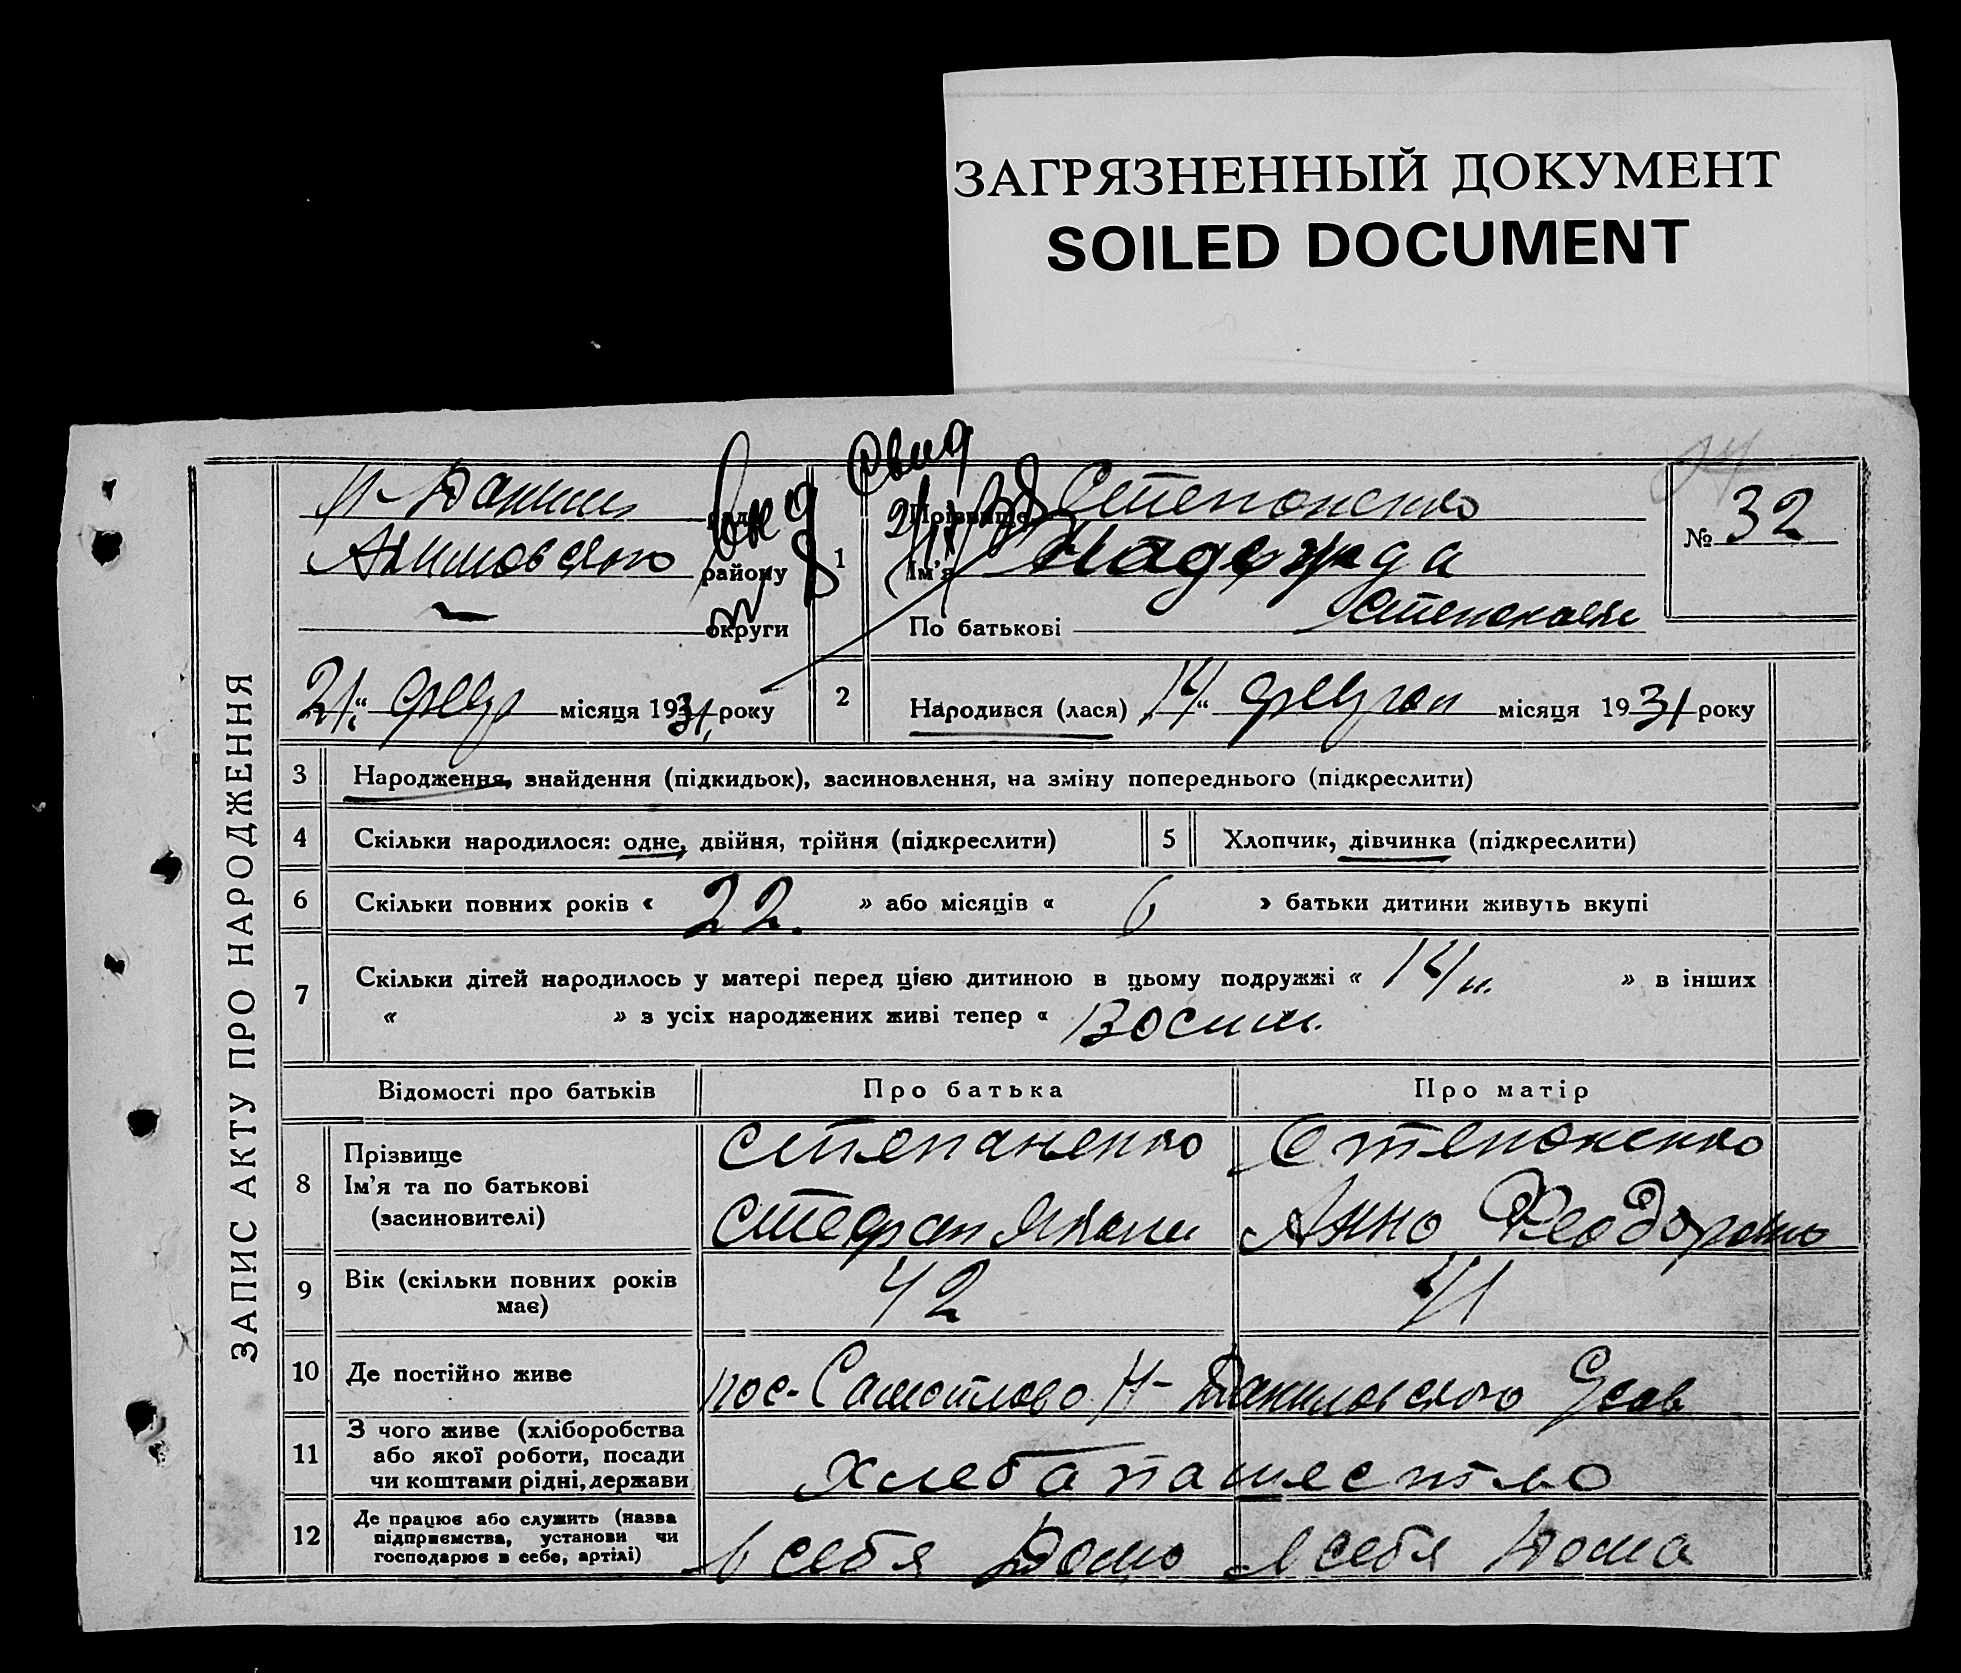 ЗАГРЯЗНЕННЫЙ ДОКУМЕНТ
SOILED DOCUMENT
ЗАПИС АКТУ ПРО НАРОДЖЕННЯ
свид
№ 32
району
округи
21 “ февр місяця 1931 року
1 Прізвище Степоненко
Ім’я Надежда
По батькові
2 Народився (лася) 14 “ феврал місяця 1931 року
3 Народження, знайдення (підкидьок), засиновлення, на зміну попереднього (підкреслити)
4 Скільки народилося: одне, двійня, трійня (підкреслити) 5 Хлопчик, дівчинка (підкреслити)
6 Скільки повних років « 22. » або місяців « 6 » батьки дитини живуть вкупі
7 Скільки дітей народилось у матері перед цією дитиною в цьому подружжі « 14 » в інших
« » з усіх народжених живі тепер «
Відомості про батьків Про батька Про матір
8 Прізвище
Ім’я та по батькові
(засиновителі)
Степаненко Степоненко
Стефан Анно
9 Вік (скільки повних років має) 42 41
10 Де постійно живе пос-
11 З чого живе (хліборобства
або якої роботи, посади
чи коштами рідні, держави
хлебапашество
12 Де працює або служить (назва
підприємства, установи чи
господарює в себе, артілі)
в себя Домо в себя Дома